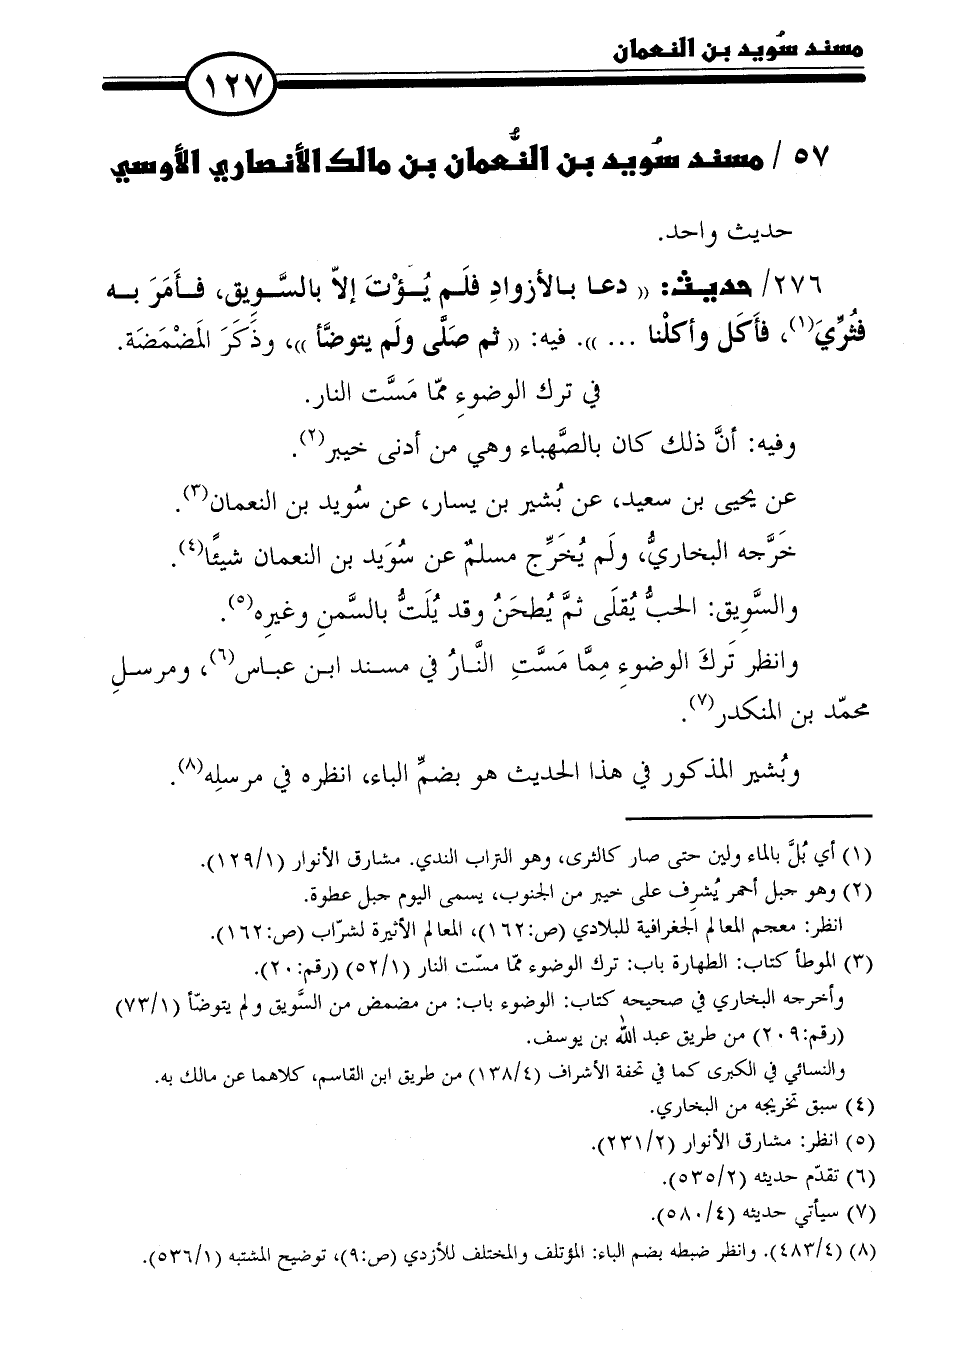 مسند سُويد بن النعمان
١٢٧
٥٧ / مسند سُويد بن النُّعمان بن مالك الأنصاري الأوسي
حديث واحد.
٢٧٦/ حديث: (( دعا بالأزوادِ فلَم يُؤْتَ إلاّ بالسَّوِيق، فأَمَرَ به
فثُرِّيَ(١)، فأَكَل وأكلْنا ... )). فيه: (( ثم صَلَّى ولَم يتوضَّأ ))، وذَكَرَ المَضْمَضَة.
في ترك الوضوءِ ممّا مَسَّت النار.
وفيه: أنَّ ذلك كان بالصَّهباء وهي من أدنى خيبر(٢).
عن يحيى بن سعيد، عن بُشير بن يسار، عن سُويد بن النعمان(٣).
خَرَّجه البخاريُّ، ولَم يُخَرِّج مسلمٌ عن سُوَيد بن النعمان شيئًا(٤).
والسَّوِيق: الحبُّ يُقلَى ثمَّ يُطحَنُ وقد يُلَتُّ بالسَّمنِ وغيرِه(٥).
وانظر تَركَ الوضوءِ مِمَّا مَسَّتِ النَّارُ في مسند ابن عباس(٦)، ومرسلِ
محمّد بن المنكدر(٧).
وبُشير المذكور في هذا الحديث هو بضمِّ الباء، انظره في مرسلِه(٨).
(١) أي بُلَّ بالماء ولين حتى صار كالثرى، وهو التراب الندي. مشارق الأنوار (١٢٩/١).
(٢) وهو جبل أحمر يُشرِف على خيبر من الجنوب، يسمى اليوم جبل عطوة.
انظر: معجم المعالم الجغرافية للبلادي (ص:١٦٢)، المعالم الأثيرة لشرّاب (ص:١٦٢).
(٣) الموطأ كتاب: الطهارة باب: ترك الوضوء ممّا مسّت النار (٥٢/١) (رقم:٢٠).
وأخرجه البخاري في صحيحه كتاب: الوضوء باب: من مضمض من السَّويق ولم يتوضّأ (٧٣/١)
(رقم:٢٠٩) من طريق عبد الله بن يوسف.
والنسائي في الكبرى كما في تحفة الأشراف (١٣٨/٤) من طريق ابن القاسم، كلاهما عن مالك به.
(٤) سبق تخريجه من البخاري.
(٥) انظر: مشارق الأنوار (٢٣١/٢).
(٦) تقدّم حديثه (٥٣٥/٢).
(٧) سيأتي حديثه (٥٨٠/٤).
(٨) (٤٨٣/٤). وانظر ضبطه بضم الباء: المؤتلف والمختلف للأزدي (ص:٩)، توضيح المشتبه (٥٣٦/١).